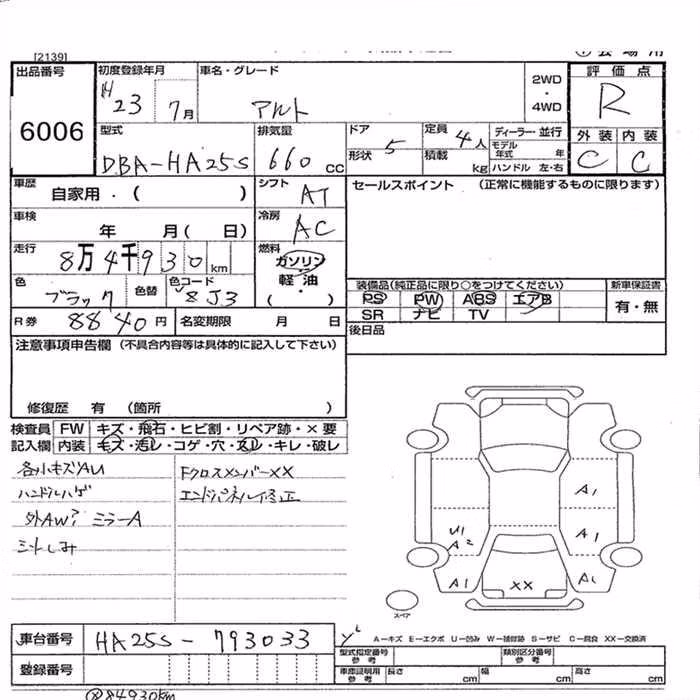 [2139]
出品番号
6006
初度登録年月
H23 7月
車名・グレード
アルト
2WD
・
4WD
評価点
R
外装 内装
C C
型式
DBA-HA25S
排気量
660 cc
ドア 5
形状
定員 4人
積載 kg
ディーラー・並行
モデル年式 年
ハンドル 左・右
車歴
自家用・( )
シフト
AT
セールスポイント (正常に機能するものに限ります)
車検
年 月( 日)
冷房
AC
走行
8万4千930km
燃料
ガソリン
・
軽油
( )
色
ブラック
色替
色コード
8J3
装備品(純正品に限り○をつけてください)
新車保証書
PS PW ABS エアB
SR ナビ TV
有・無
R券 8840円
名変期限 月 日
後日品
注意事項申告欄 (不具合内容等は具体的に記入して下さい)
修復歴 有 (箇所 )
検査員 FW キズ・飛石・ヒビ割・リペア跡・×要
記入欄 内装 キズ・汚レ・コゲ・穴・スレ・キレ・破レ
各小キズAU
ハンドルハゲ
外AW? ミラーA
シートしみ
FクロスメンバーXX
エンドパネル修正
A1
U1
A2
A1
A1
XX
スペア
車台番号 HA25S-793033
A=キズ E=エクボ U=凹み W=補修跡 S=サビ C=腐食 XX=交換済
登録番号
型式指定番号
参考
類別区分番号
参考
車庫証明用
参考
長さ cm
幅 cm
高さ cm
84930km